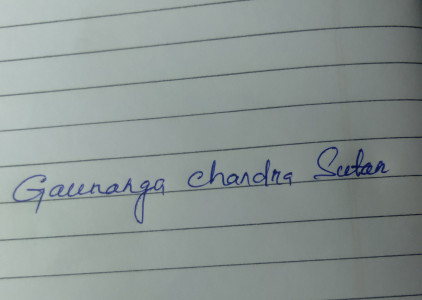 Gauranga chandra Sutar